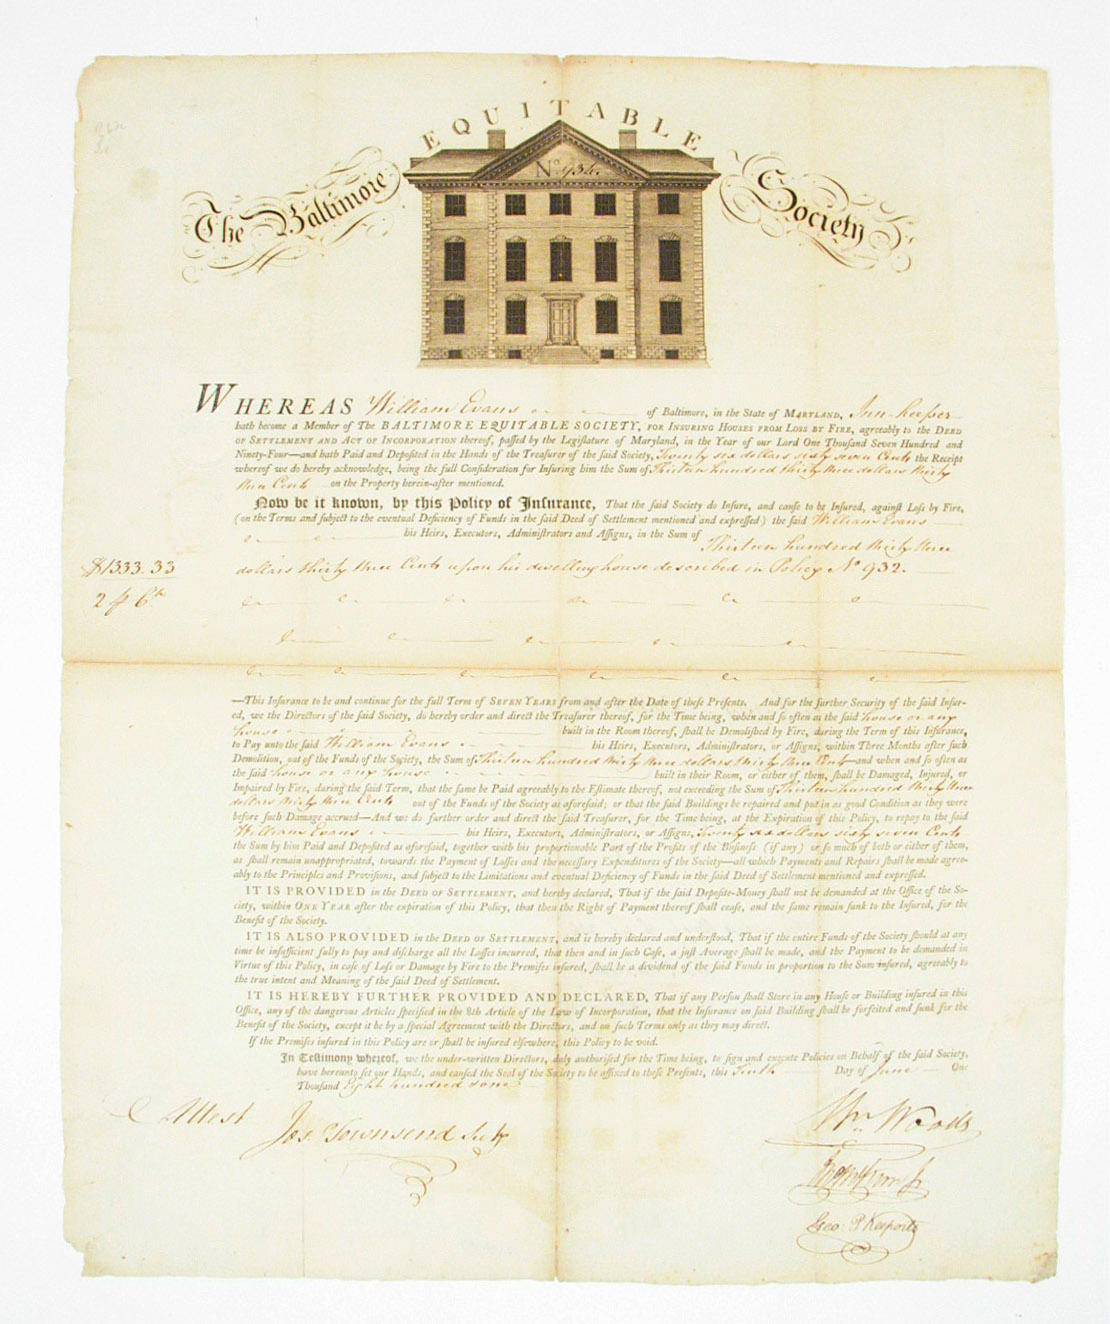 EQUITABLE
The Baltimore Society
No. 934.
WHEREAS William Evans of Baltimore, in the State of MARYLAND, Inn-keeper
hath become a Member of THE BALTIMORE EQUITABLE SOCIETY, FOR INSURING HOUSES FROM LOSS BY FIRE, agreeably to the DEED
OF SETTLEMENT AND ACT OF INCORPORATION thereof, passed by the Legislature of Maryland, in the Year of our Lord One Thousand Seven Hundred and
Ninety-Four—and hath Paid and Deposited in the Hands of the Treasurer of the said Society, Twenty six dollars sixty seven Cents the Receipt
whereof we do hereby acknowledge, being the full Consideration for Insuring him the Sum of Thirteen hundred thirty three dollars thirty
three Cents on the Property herein-after mentioned.
Now be it known, by this Policy of Insurance, That the said Society do Insure, and cause to be Insured, against Loss by Fire,
(on the Terms and subject to the eventual Deficiency of Funds in the said Deed of Settlement mentioned and expressed) the said William Evans
his Heirs, Executors, Administrators and Assigns, in the Sum of Thirteen hundred thirty three
$1333.33 dollars thirty three Cents upon his dwelling house described in Policy No. 932.
—This Insurance to be and continue for the full Term of SEVEN YEARS from and after the Date of these Presents. And for the further Security of the said Insur-
ed, we the Directors of the said Society, do hereby order and direct the Treasurer thereof, for the Time being, when and so often as the said house or any
house built in the Room thereof, shall be Demolished by Fire, during the Term of this Insurance,
to Pay unto the said William Evans his Heirs, Executors, Administrators, or Assigns, within Three Months after such
Demolition, out of the Funds of the Society, the Sum of Thirteen hundred thirty three dollars thirty three Cents—and when and so often as
the said house or any house built in their Room, or either of them, shall be Damaged, Injured, or
Impaired by Fire, during the said Term, that the same be Paid agreeably to the Estimate thereof, not exceeding the Sum of Thirteen hundred thirty three
dollars thirty three Cents out of the Funds of the Society as aforesaid; or that the said Buildings be repaired and put in as good Condition as they were
before such Damage accrued—And we do further order and direct the said Treasurer, for the Time being, at the Expiration of this Policy, to repay to the said
William Evans his Heirs, Executors, Administrators, or Assigns, Twenty six dollars sixty seven Cents
the Sum by him Paid and Deposited as aforesaid, together with his proportionable Part of the Profits of the Business (if any) or so much of both or either of them,
as shall remain unappropriated, towards the Payment of Losses and the necessary Expenditures of the Society—all which Payments and Repairs shall be made agree-
ably to the Principles and Provisions, and subject to the Limitations and eventual Deficiency of Funds in the said Deed of Settlement mentioned and expressed.
IT IS PROVIDED in the DEED OF SETTLEMENT, and hereby declared, That if the said Deposite-Money shall not be demanded at the Office of the So-
ciety, within ONE YEAR after the expiration of this Policy, that then the Right of Payment thereof shall cease, and the same remain sunk to the Insured, for the
Benefit of the Society.
IT IS ALSO PROVIDED in the DEED OF SETTLEMENT, and is hereby declared and understood, That if the entire Funds of the Society should at any
time be insufficient fully to pay and discharge all the Losses incurred, that then and in such Case, a just Average shall be made, and the Payment to be demanded in
Virtue of this Policy, in case of Loss or Damage by Fire to the Premises insured, shall be a dividend of the said Funds in proportion to the Sum insured, agreeably to
the true intent and Meaning of the said Deed of Settlement.
IT IS HEREBY FURTHER PROVIDED AND DECLARED, That if any Person shall Store in any House or Building insured in this
Office, any of the dangerous Articles specified in the 8th Article of the Law of Incorporation, that the Insurance on said Building shall be forfeited and sunk for the
Benefit of the Society, except it be by a special Agreement with the Directors, and on such Terms only as they may direct.
If the Premises insured in this Policy are or shall be insured elsewhere, this Policy to be void.
In Testimony whereof, we the under-written Directors, duly authorised for the Time being, to sign and execute Policies on Behalf of the said Society,
have hereunto set our Hands, and caused the Seal of the Society to be affixed to these Presents, this Tenth Day of June One
Thousand Eight hundred &
Attest Jos. Townsend Secty
Wm. Woods
Geo P Keeports